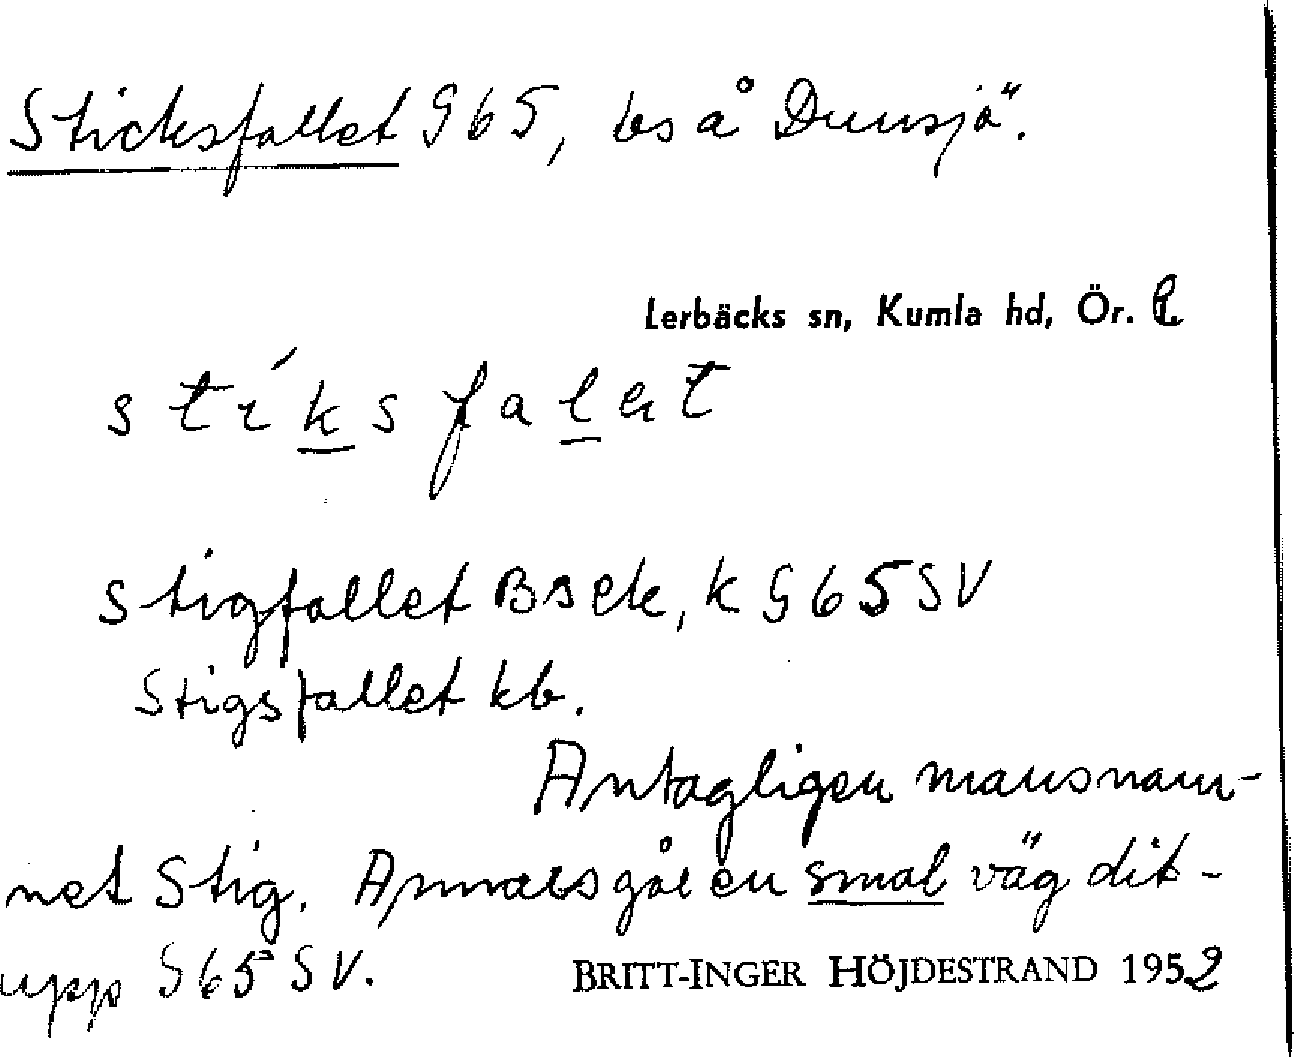 Sticksfallet G65, bs å Dunsjö.
Lerbäcks sn, Kumla hd, Ör. l.
stíksfalet
Stigfallet Bsek, k G65SV
Stigsfallet kb.
Antagligen mansnam-
net Stig. Annars går en smal väg dit-
upp G65SV.
BRITT-INGER HÖJDESTRAND 1952